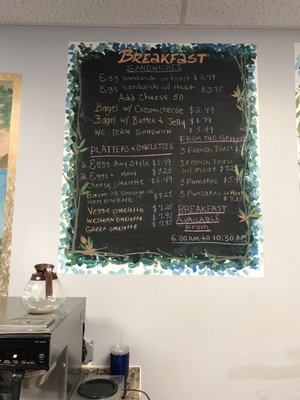 BREAKFAST
SANDWICHES
Egg Sandwich on toast $2.49
Egg Sandwich w/ Meat $3.75
Add Cheese .50
Bagel w/ Creamcheese $2.49
Bagel w/ Butter & Jelly $1.79
Western Sandwich $5.49
PLATTERS & OMELETTES
2 Eggs Any Style $5.49
2 Eggs + Meat $7.25
Cheese omelette $6.49
Bacon or Sausage or
Ham omelette $7.25
Veggie omelette $7.25
Western omelette $7.95
Greek omelette $7.95
FROM THE GRIDDLE
3 French Toast
3 French Toast
w/ meat $7.25
3 Pancakes $5.49
3 Pancakes w/ Meat
$7.25
BREAKFAST
AVAILABLE
FROM
6:00 AM to 10:30 AM